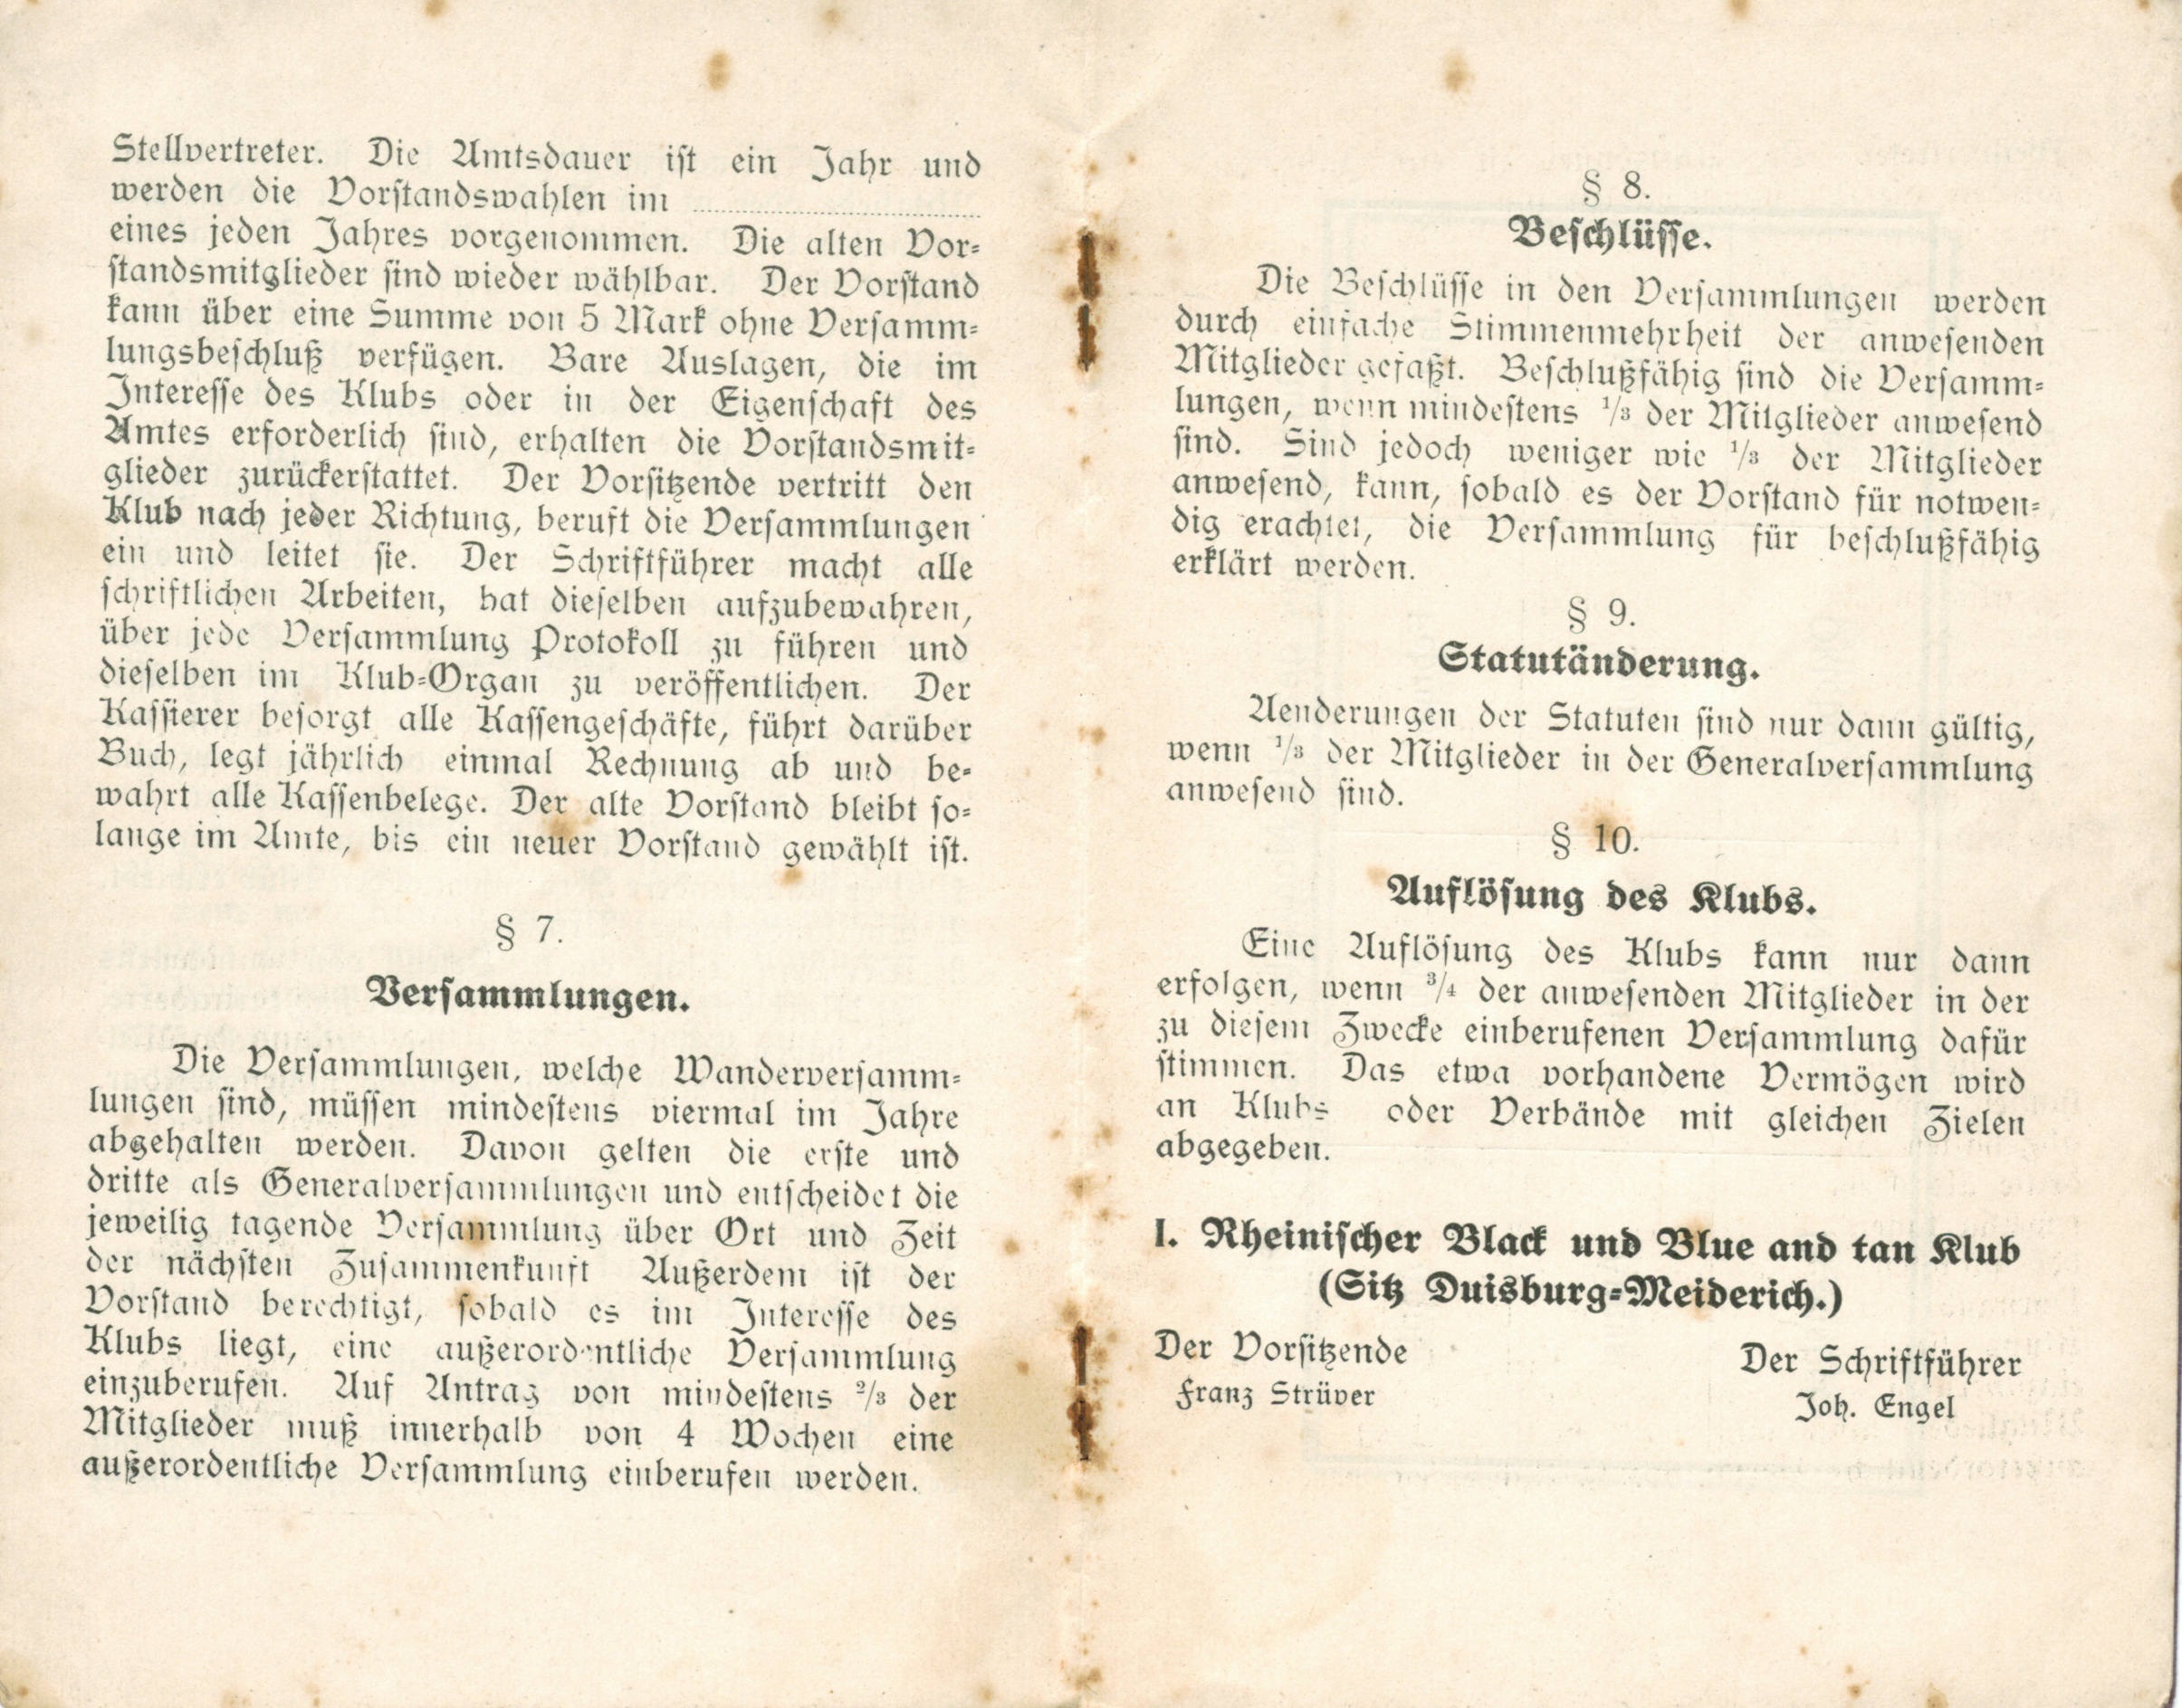 Stellvertreter. Die Amtsdauer ist ein Jahr und
werden die Vorstandswahlen im ..............................
eines jeden Jahres vorgenommen. Die alten Vor-
standsmitglieder sind wieder wählbar. Der Vorstand
kann über eine Summe von 5 Mark ohne Versamm-
lungsbeschluß verfügen. Bare Auslagen, die im
Interesse des Klubs oder in der Eigenschaft des
Amtes erforderlich sind, erhalten die Vorstandsmit-
glieder zurückerstattet. Der Vorsitzende vertritt den
Klub nach jeder Richtung, beruft die Versammlungen
ein und leitet sie. Der Schriftführer macht alle
schriftlichen Arbeiten, hat dieselben aufzubewahren,
über jede Versammlung Protokoll zu führen und
dieselben im Klub-Organ zu veröffentlichen. Der
Kassierer besorgt alle Kassengeschäfte, führt darüber
Buch, legt jährlich einmal Rechnung ab und be-
wahrt alle Kassenbelege. Der alte Vorstand bleibt so-
lange im Amte, bis ein neuer Vorstand gewählt ist.
§ 7.
Versammlungen.
Die Versammlungen, welche Wanderversamm-
lungen sind, müssen mindestens viermal im Jahre
abgehalten werden. Davon gelten die erste und
dritte als Generalversammlungen und entscheidet die
jeweilig tagende Versammlung über Ort und Zeit
der nächsten Zusammenkunft Außerdem ist der
Vorstand berechtigt, sobald es im Interesse des
Klubs liegt, eine außerordentliche Versammlung
einzuberufen. Auf Antrag von mindestens 2/3 der
Mitglieder muß innerhalb von 4 Wochen eine
außerordentliche Versammlung einberufen werden.
§ 8.
Beschlüsse.
Die Beschlüsse in den Versammlungen werden
durch einfache Stimmenmehrheit der anwesenden
Mitglieder gefaßt. Beschlußfähig sind die Versamm-
lungen, wenn mindestens 1/3 der Mitglieder anwesend
sind. Sind jedoch weniger wie 1/3 der Mitglieder
anwesend, kann, sobald es der Vorstand für notwen-
dig erachtet, die Versammlung für beschlußfähig
erklärt werden.
§ 9.
Statutänderung.
Aenderungen der Statuten sind nur dann gültig,
wenn 1/3 der Mitglieder in der Generalversammlung
anwesend sind.
§ 10.
Auflösung des Klubs.
Eine Auflösung des Klubs kann nur dann
erfolgen, wenn 3/4 der anwesenden Mitglieder in der
zu diesem Zwecke einberufenen Versammlung dafür
stimmen. Das etwa vorhandene Vermögen wird
an Klubs oder Verbände mit gleichen Zielen
abgegeben.
I. Rheinischer Black und Blue and tan Klub
(Sitz Duisburg-Meiderich.)
Der Vorsitzende Der Schriftführer
Franz Strüver Joh. Engel